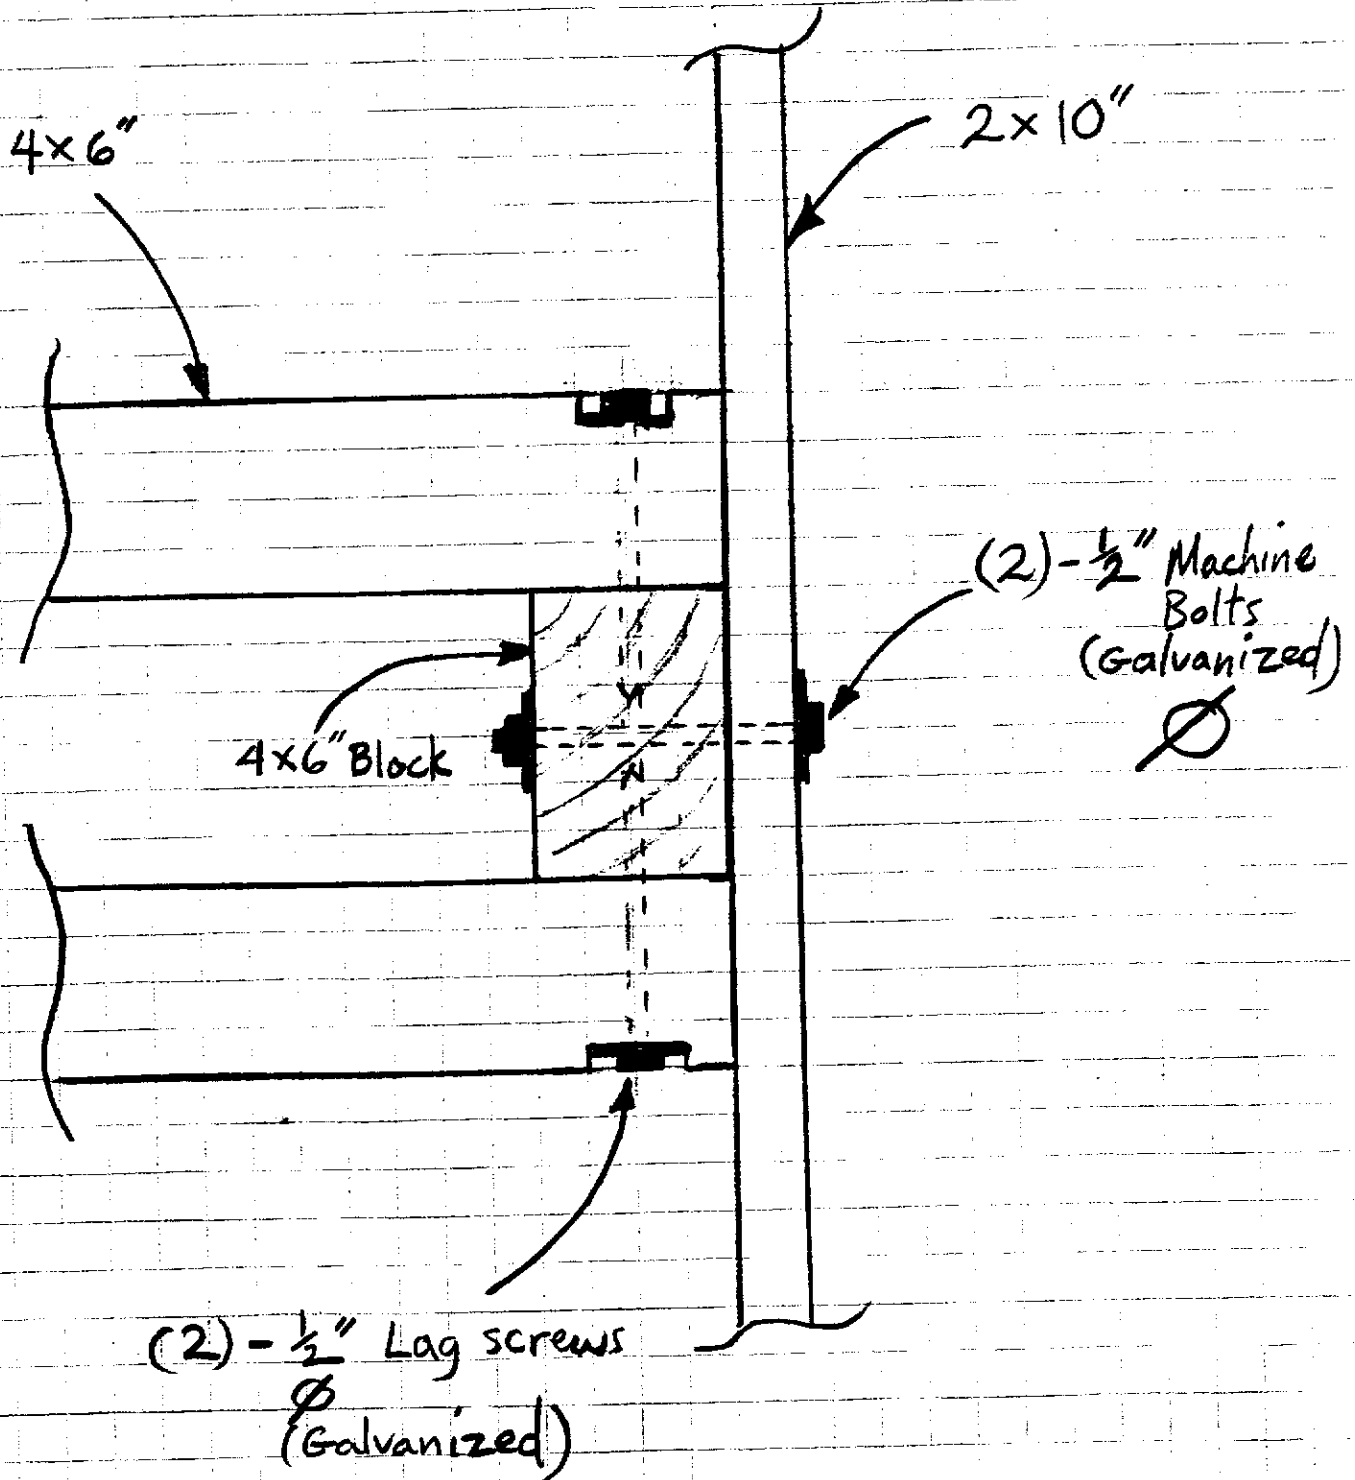 4×6"
2×10"
(2)-½" Machine
Bolts
(Galvanized)
Ø
4×6" Block
(2)-½" Lag screws
Ø
(Galvanized)